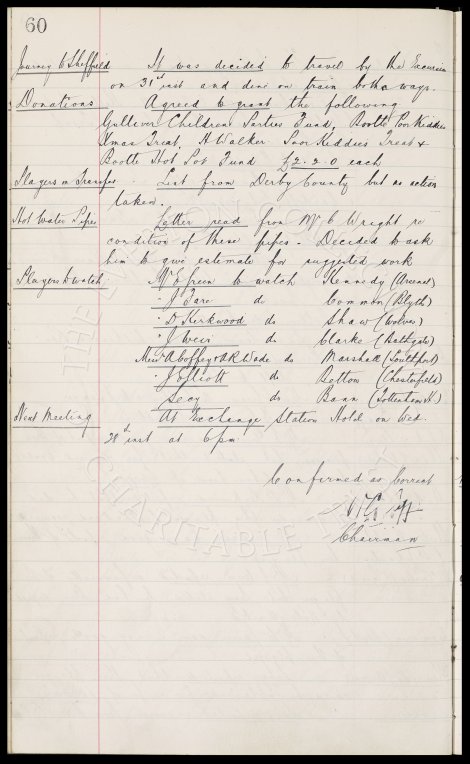 60
Journey to Sheffield It was decided to travel by the Excursion
on 31st inst and dine on train both ways.
Donations Agreed to grant the following
Gulliver Children Parties Fund, Bootle Poor Kiddies
Xmas Treat, A Walker Poor Kiddies Treat &
Bootle Hot Pot Fund £2-2-0 each
Players on Transfer - List from Derby County but no action
taken.
Hot Water Pipes Letter read from Mr C Wright re
condition of these pipes - Decided to ask
him to give estimate for suggested work
Players to watch Mr Green to watch Kennedy (Arsenal)
" J Fare do Common (Blyth)
" D Kirkwood do Shaw (Wolves)
" J Weir do Clarke (Bathgate)
Messrs A Coffey & A R Wade do Marshall (Southport)
" J Elliott do Betton (Chesterfield)
Secy do Bann (Tottenham H.)
Next Meeting At Exchange Station Hotel on Wed.
28th inst at 6pm
Confirmed as Correct
Chairman
THE
CHARITABLE